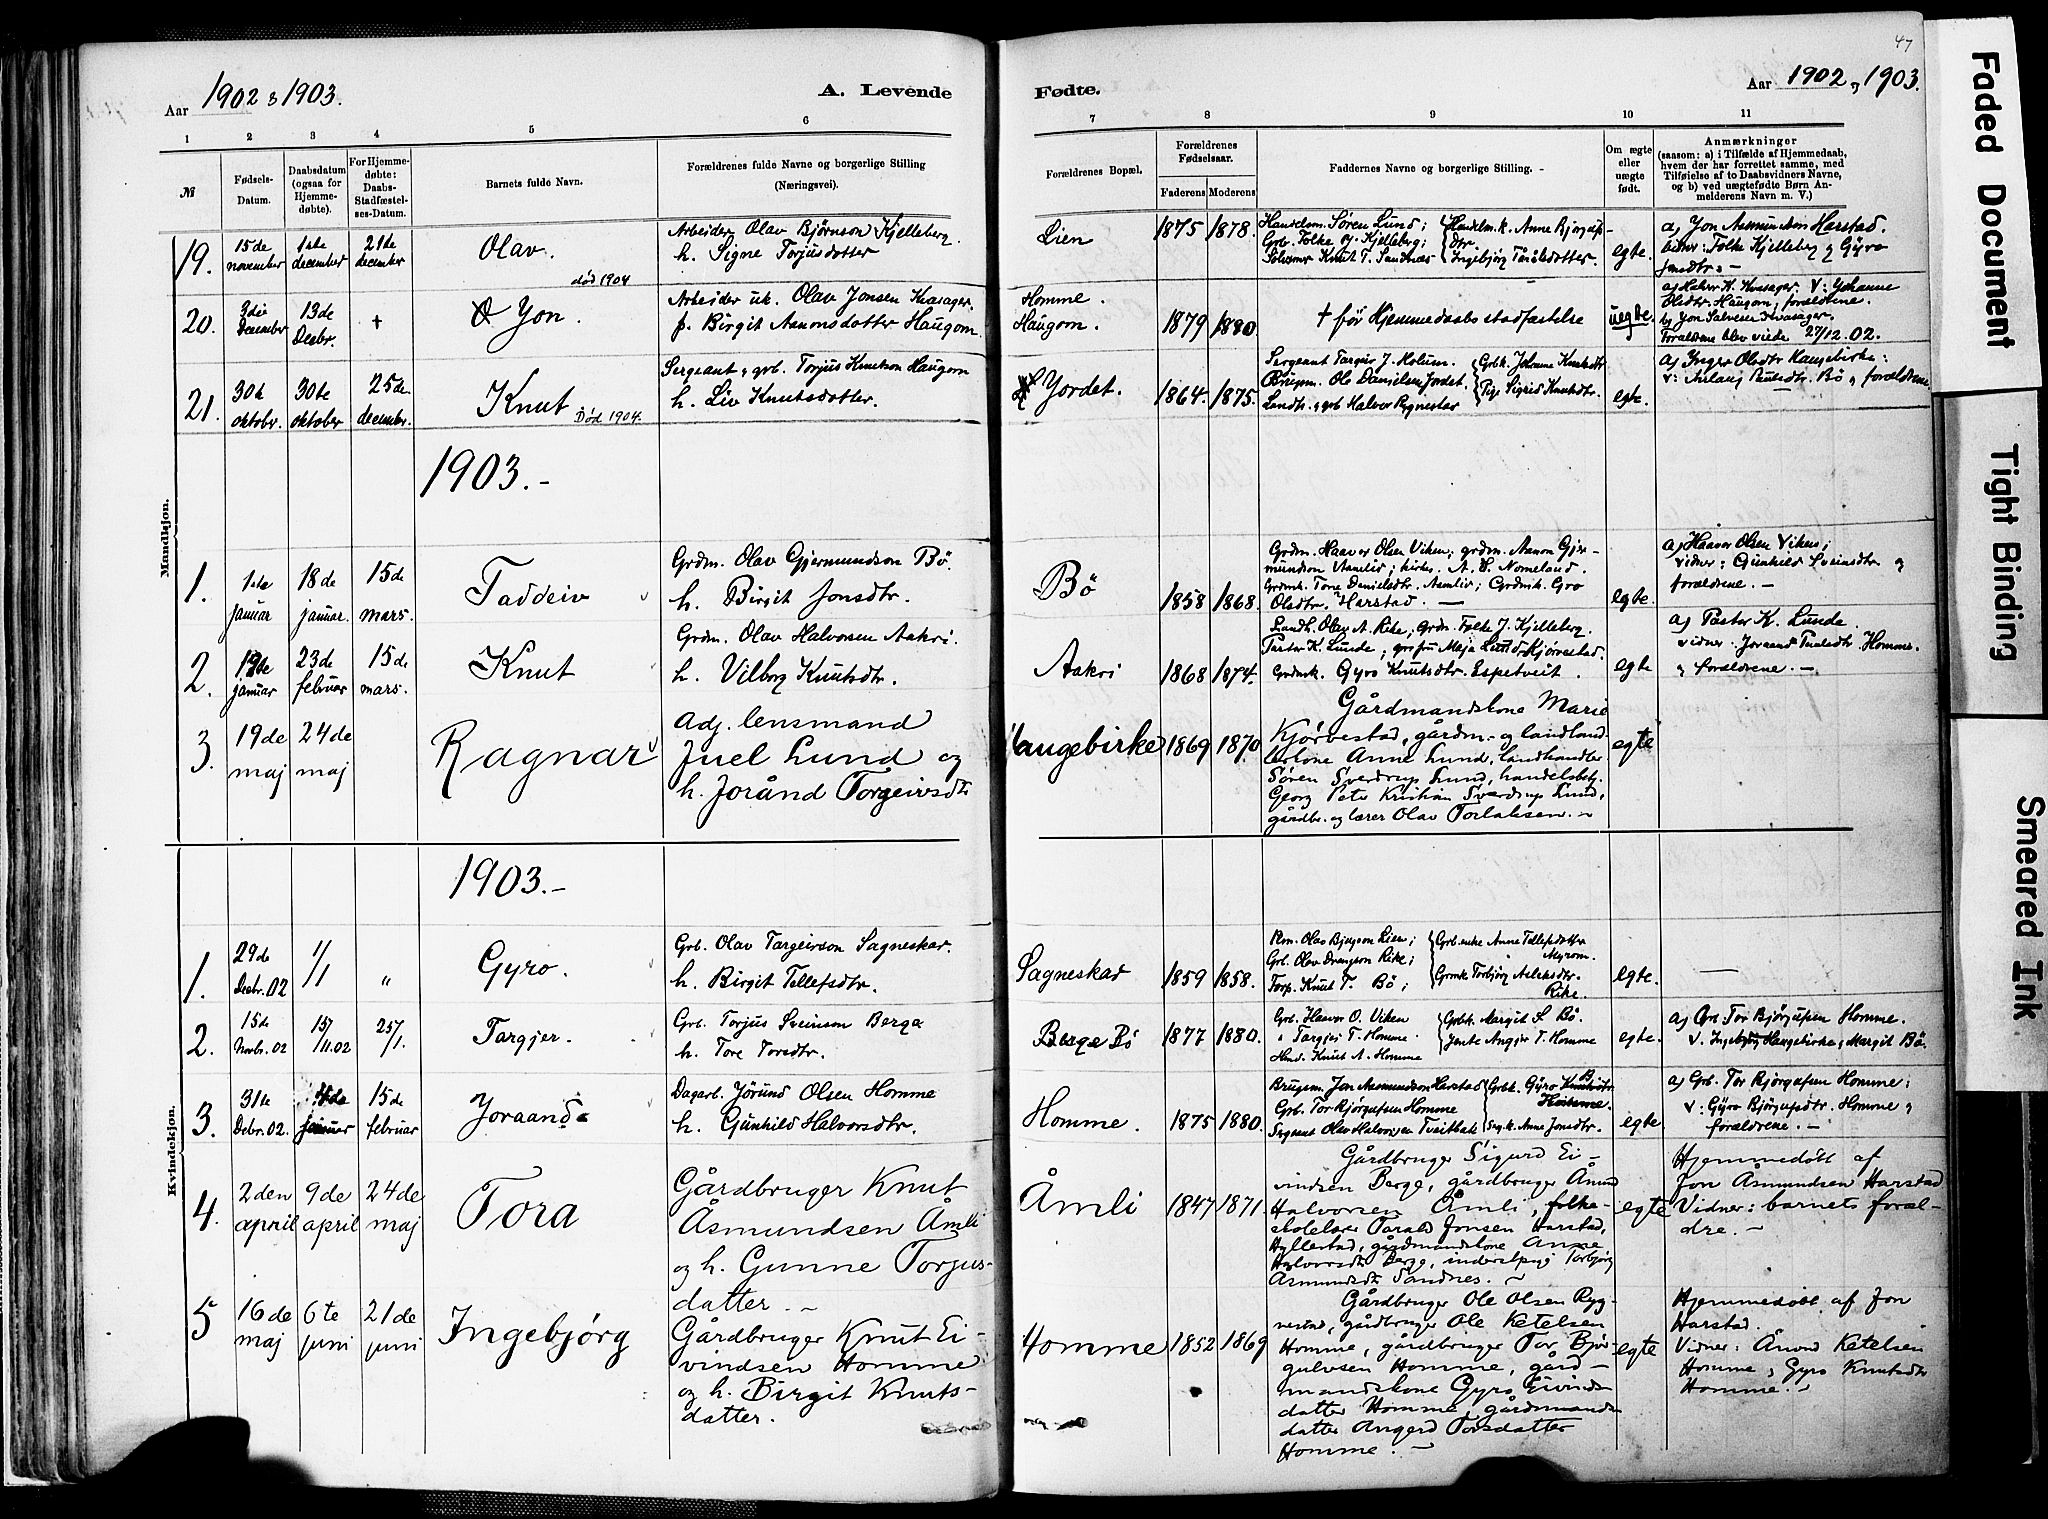 47
Aar 1902 & 1903.
A. Levende
Fødte.
Aar 1902 & 1903.
1 2 3 4 5 6 7 8 9 10 11
№
Fødsels-Datum.
Daabsdatum (ogsaa for Hjemmedøbte).
For Hjemmedøbte: Daabs-Stadfæstelses-Datum.
Barnets fulde Navn.
Forældrenes fulde Navne og borgerlige Stilling (Næringsvei).
Forældrenes Bopæl.
Forældrenes Fødselsaar.
Faderens Moderens
Faddernes Navne og borgerlige Stilling.
Om ægte eller uægte født.
Anmærkninger
(saasom: a) i Tilfælde af Hjemmedaab, hvem der har forrettet samme, med Tilføielse af to Daabsvidners Navne, og b) ved uægtefødte Børn Anmelderens Navn m. V.)
Mandkjøn.
19. 15de november 1ste december 21de december
Olav.
Arbeider Olav Bjørnson Kjelleberg.
h. Signe Torjusdatter
Lien
1875 1878.
Handelsm. Søren Lund; Handelsm.k. Anne Bjørgulfsdtr.
Grb. Folke og. Kjelleberg;
Knut T. Sandnæs Ingebjørg Taraldsdatter.
egte.
a) Jon Asmundson Harstad.
vidner: Folke Kjelleberg & Gyro
Jonsdtr. –
20. 3die December 13de Decbr. †
død 1904
Yon.
Arbeider uk. Olav Jonsen Kvasager.
p. Birgit Aanonsdatter Haugom.
Homme.
Haugom.
1879 1880
† før Hjemmedaabsstadfæstelse
uegte.
a) Halvor K. Kvasager V: Johanne
Olsdtr. Haugom, forældrene.
b) Jon Salvesen Kvasager.
Forældrene blev viede 27/12.02.
21. 30te oktober 30te oktober 25de december.
Knut
Død 1904.
Sergeant & grb. Torjus Knutson Haugom
h. Liv Knutsdatter.
Yordet.
1864. 1875.
Sergeant Targeir J. Holum. Grbk. Johanne Knutsdtr
Brugsm. Ole Danjelsen Jordet. Pige Sigrid Knutsdtr.
Landh. & grb Halvor Rygnestad
egte.
a) Inger Olsdtr Haugebirke:
V: Aslaug Paulsdtr. Bø & forældrene
1903.-
1. 1ste januar 18de januar. 15de mars.
Taddeiv
Grdm. Olav Gjermundson Bö.
h. Birgit Jonsdtr.
Bö
1858 1868.
Grdm. Haavor Olsen Viken; grdm. Aanon Gjermundson Aamlid; kirkes. A. O. Nomeland.
Grdmk. Tore Danielsdtr. Aamliv; Grdmk. Gro
Olsdtr. Harstad. –
egte.
a) Haavor Olsen Viken;
vidner: Gunhild Sveinsdtr &
forældrene. –
2. 19de januar 23de februar 15de mars.
Knut
Grdm. Olav Halvorsen Aakri.
h. Vilborg Knutsdtr.
Aakri
1868 1874.
Landh. Olav A. Rike; Grdm. Folke J. Kjelleberg.
Pastor K. Lunde; Maja Lund Kjørvestad.
Grdmk. Gyro Knutsdtr. Espetveit.
egte
a) Pastor K. Lunde.
vidner: Joraand Homme
& forældrene –
3. 19de maj 24de maj
Ragnar
Adj. lensmand
Juel Lund og
h. Jorånd Torgeirsdtr
Haugebirke
1869 1870
Gårdmandskone Marie
Kjørvestad, gårdm.- og landhandlerkone Anne Lund, landhandler
Søren Sverdrup Lund, handelsbetj.
Georg Peter Kristian Sverdrup Lund,
gårdbr. og lærer Olav Torlaksen. –
egte
1903.-
Kvindekjøn.
1. 29de Decbr. 02 1/1 „
Gyro.
Grb. Olav Targeirson Sagneskar.
h. Birgit Tellefsdtr.
Sagneskad
1859 1858.
Olav Bjørgson Lien; Grb.enke Anne Tellefsdatter Myrom.
Grb. Olav Drengson Rike; Grmk Torbjørg Aslaksdtr. Rike.
Torp. Knut T. Bö;
egte.
—
2. 15de Novbr. 02 15/11.02 25/1.
Targjer.
Grb. Torjus Sveinson Berge
h. Tore Torsdtr.
Berge Bö
1877 1880.
Grb. Haavor O. Viken Grbk. Margit S. Bö.
" Targjei T. Homme Jente Angjer T. Homme
Knut A. Homme
egte.
a) Grb. Tor Bjørgufsen Homme.
V. Ingebjørg Haugebirke & Margit Bö.
3. 31te Debr. 02. januar 15de februar
Joraand
Dagarb. Jörund Olsen Homme
h. Gunhild Halvorsdtr.
Homme.
1875 1880.
Brugsm. Jon Asmundson Harstad Grbk. Gyro Knutsdtr
Grb. Tor Bjørgufsen Homme
Sergeant Olav Halvorsen Tveitbak Anne Jonsdtr.
egte
a) Grb. Tor Bjørgufsen Homme:
V: Gyro Bjørgufsdtr. Homme &
forældrene. –
4. 2den april 9de april 24de maj
Tora
Gårdbruger Knut
Åsmundsen Åmli
og h. Gunne Torjusdatter. –
Åmli
1847 1871.
Gårdbruger Sigurd Eivindsen Berge, gårdbruger Ånund
Halvorsen Åmli, folkeskolelærer Tarald Jonsen Harstad,
Hyllestad, gårdmandskone Anne
Halvorsdt Berge, inderstpig Torbjørg
Asmundsdt Sandnes. –
egte
Hjemmedøbt af
Jon Åsmundsen Harstad
Vidner: barnets forældre. –
5 16de maj 6te juni 21de juni
Ingebjørg
Gårdbruger Knut Eivindsen Homme
og h. Birgit Knutsdatter.
Homme
1852 1869
Gårdbruger Ole Olsen Rygnestad, gårdbruger Ole Ketelsen
Homme, gårdbruger Tor Bjørgulvsen Homme, gårdmandskone Gyro Eivindsdatter Homme, gårdmandsdatter Angerd Torsdatter
Homme. –
egte
Hjemmedøbt af Jon
Harstad.
Vidner: Ånund Ketelsen
Homme & Gyro Knutsdtr
Homme. –
Faded Document
Tight Binding
Smeared Ink